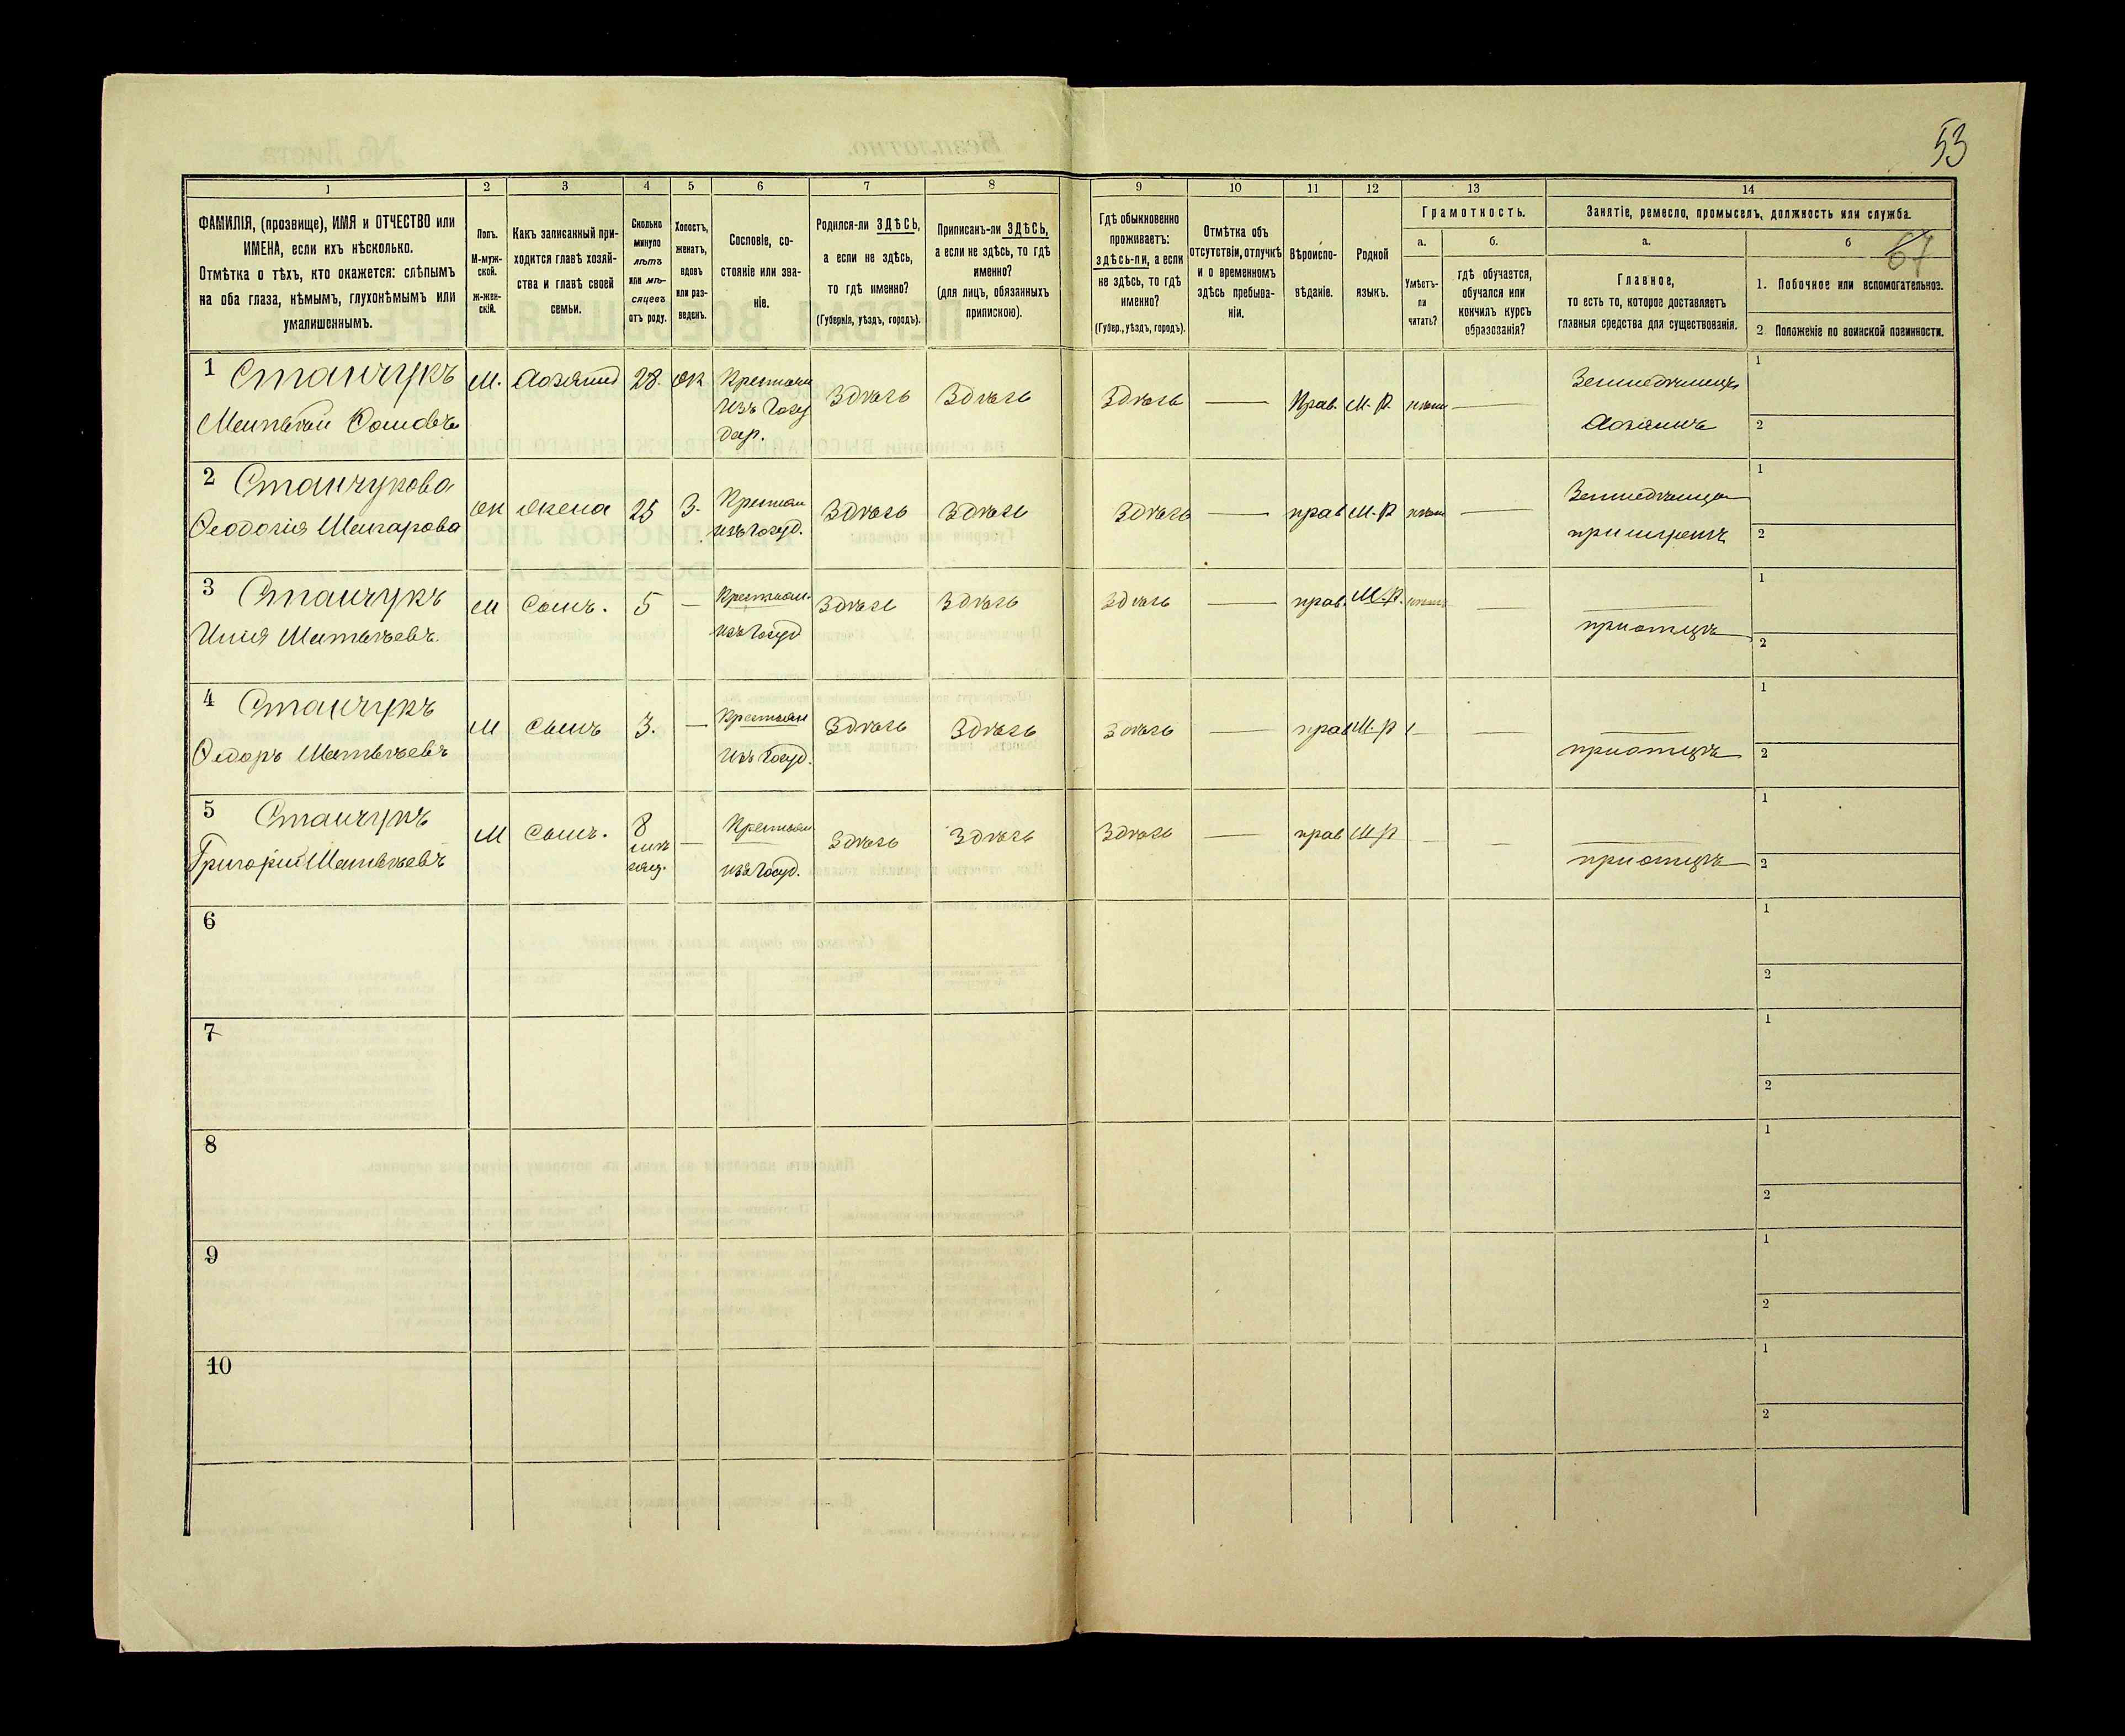 53
1 2 3 4 5 6 7 8 9 10 11 12 13 14
ФАМИЛІЯ, (прозвище), ИМЯ и ОТЧЕСТВО или
ИМЕНА, если ихъ нѣсколько.
Отмѣтка о тѣхъ, кто окажется: слѣпымъ
на оба глаза, нѣмымъ, глухонѣмымъ или
умалишеннымъ.
Полъ.
М-муж-
ской.
Ж-жен-
скій.
Какъ записанный при-
ходится главѣ хозяй-
ства и главѣ своей
семьи.
Сколько
минуло
лѣтъ
или мѣ-
сяцевъ
отъ роду.
Холостъ,
женатъ,
вдовъ
или раз-
веденъ.
Сословіе, со-
стояніе или зва-
ніе.
Родился-ли ЗДѢСЬ,
а если не здѣсь,
то гдѣ именно?
(Губернія, уѣздъ, городъ).
Приписанъ-ли ЗДѢСЬ,
а если не здѣсь, то гдѣ
именно?
(для лицъ, обязанныхъ
припискою).
Гдѣ обыкновенно
проживаетъ:
здѣсь-ли, а если
не здѣсь, то гдѣ
именно?
(Губер., уѣздъ, городъ).
Отмѣтка объ
отсутствіи, отлучкѣ
и о временномъ
здѣсь пребыва-
ніи.
Вѣроиспо-
вѣданіе.
Родной
языкъ.
Грамотность.
а.
Умѣетъ-
ли
читать?
б.
гдѣ обучается,
обучался или
кончилъ курсъ
образованія?
Занятіе, ремесло, промыселъ, должность или служба.
а.
Главное,
то есть то, которое доставляетъ
главныя средства для существованія.
б
67
1. Побочное или вспомогательное.
2 Положеніе по воинской повинности.
1 Станчукъ
М. хозяинъ 28. ж Крестьян
изъ Госу
дар.
Здѣсь Здѣсь Здѣсь — Прав. М.Р. —
Земледѣлецъ
хозяинъ
1
2
2 Станчукова
Ѳеодосія
ж жена 25 З. Крестьян
изъ Госуд.
Здѣсь Здѣсь Здѣсь — прав М.Р —
при мужѣ
1
2
3 Станчукъ
Илія Матѳѣевъ.
М Сынъ. 5 — Крестьян.
изъ Госуд
Здѣсь Здѣсь Здѣсь — прав. М.Р. — —
при отцѣ
1
2
4 Станчукъ
Ѳедоръ Матѳѣевъ
М Сынъ 3. — Крестьян
изъ Госуд.
Здѣсь Здѣсь Здѣсь — прав М.Р — — —
при отцѣ
1
2
5 Станчукъ
Григорій Матѳѣевъ
М Сынъ. 8 — Крестьян
изъ Госуд.
Здѣсь Здѣсь Здѣсь — прав М.Р — — —
при отцѣ
1
2
6
1
2
7
1
2
8
1
2
9
1
2
10
1
2